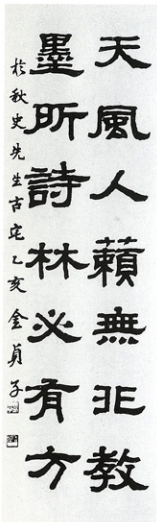 天風人籟無非教
墨昕詩林必有方
於秋史先生古宅乙亥金貞子